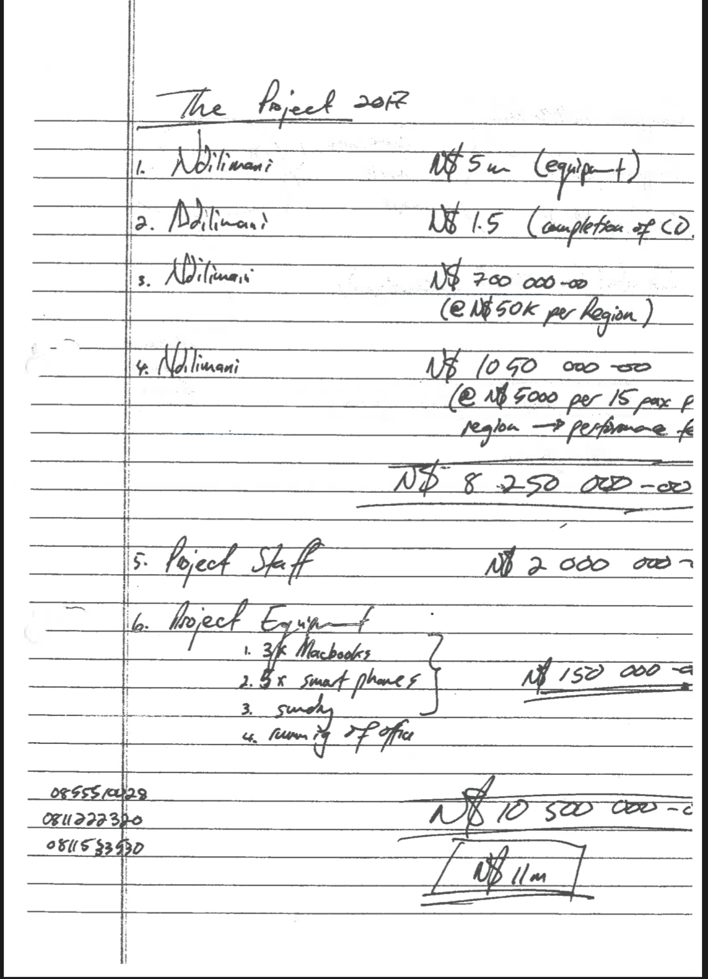 The Project 2017
1. Ndilimani N$ 5m (equipment)
2. Ndilimani N$ 1.5 (completion of CD.
3. Ndilimani N$ 700 000-00
(@ N$ 50K per Region)
4. Ndilimani N$ 1050 000-00
(@ N$ 5000 per 15 pax p
region → performance fe
N$ 8 250 000-00
5. Project Staff N$ 2 000 000-
6. Project Equipment
1. 3x Macbooks
2. 5x smart phones
3. sundry
N$ 150 000-0
4. running of office
0811222320
N$ 10 500 000-0
N$ 11m